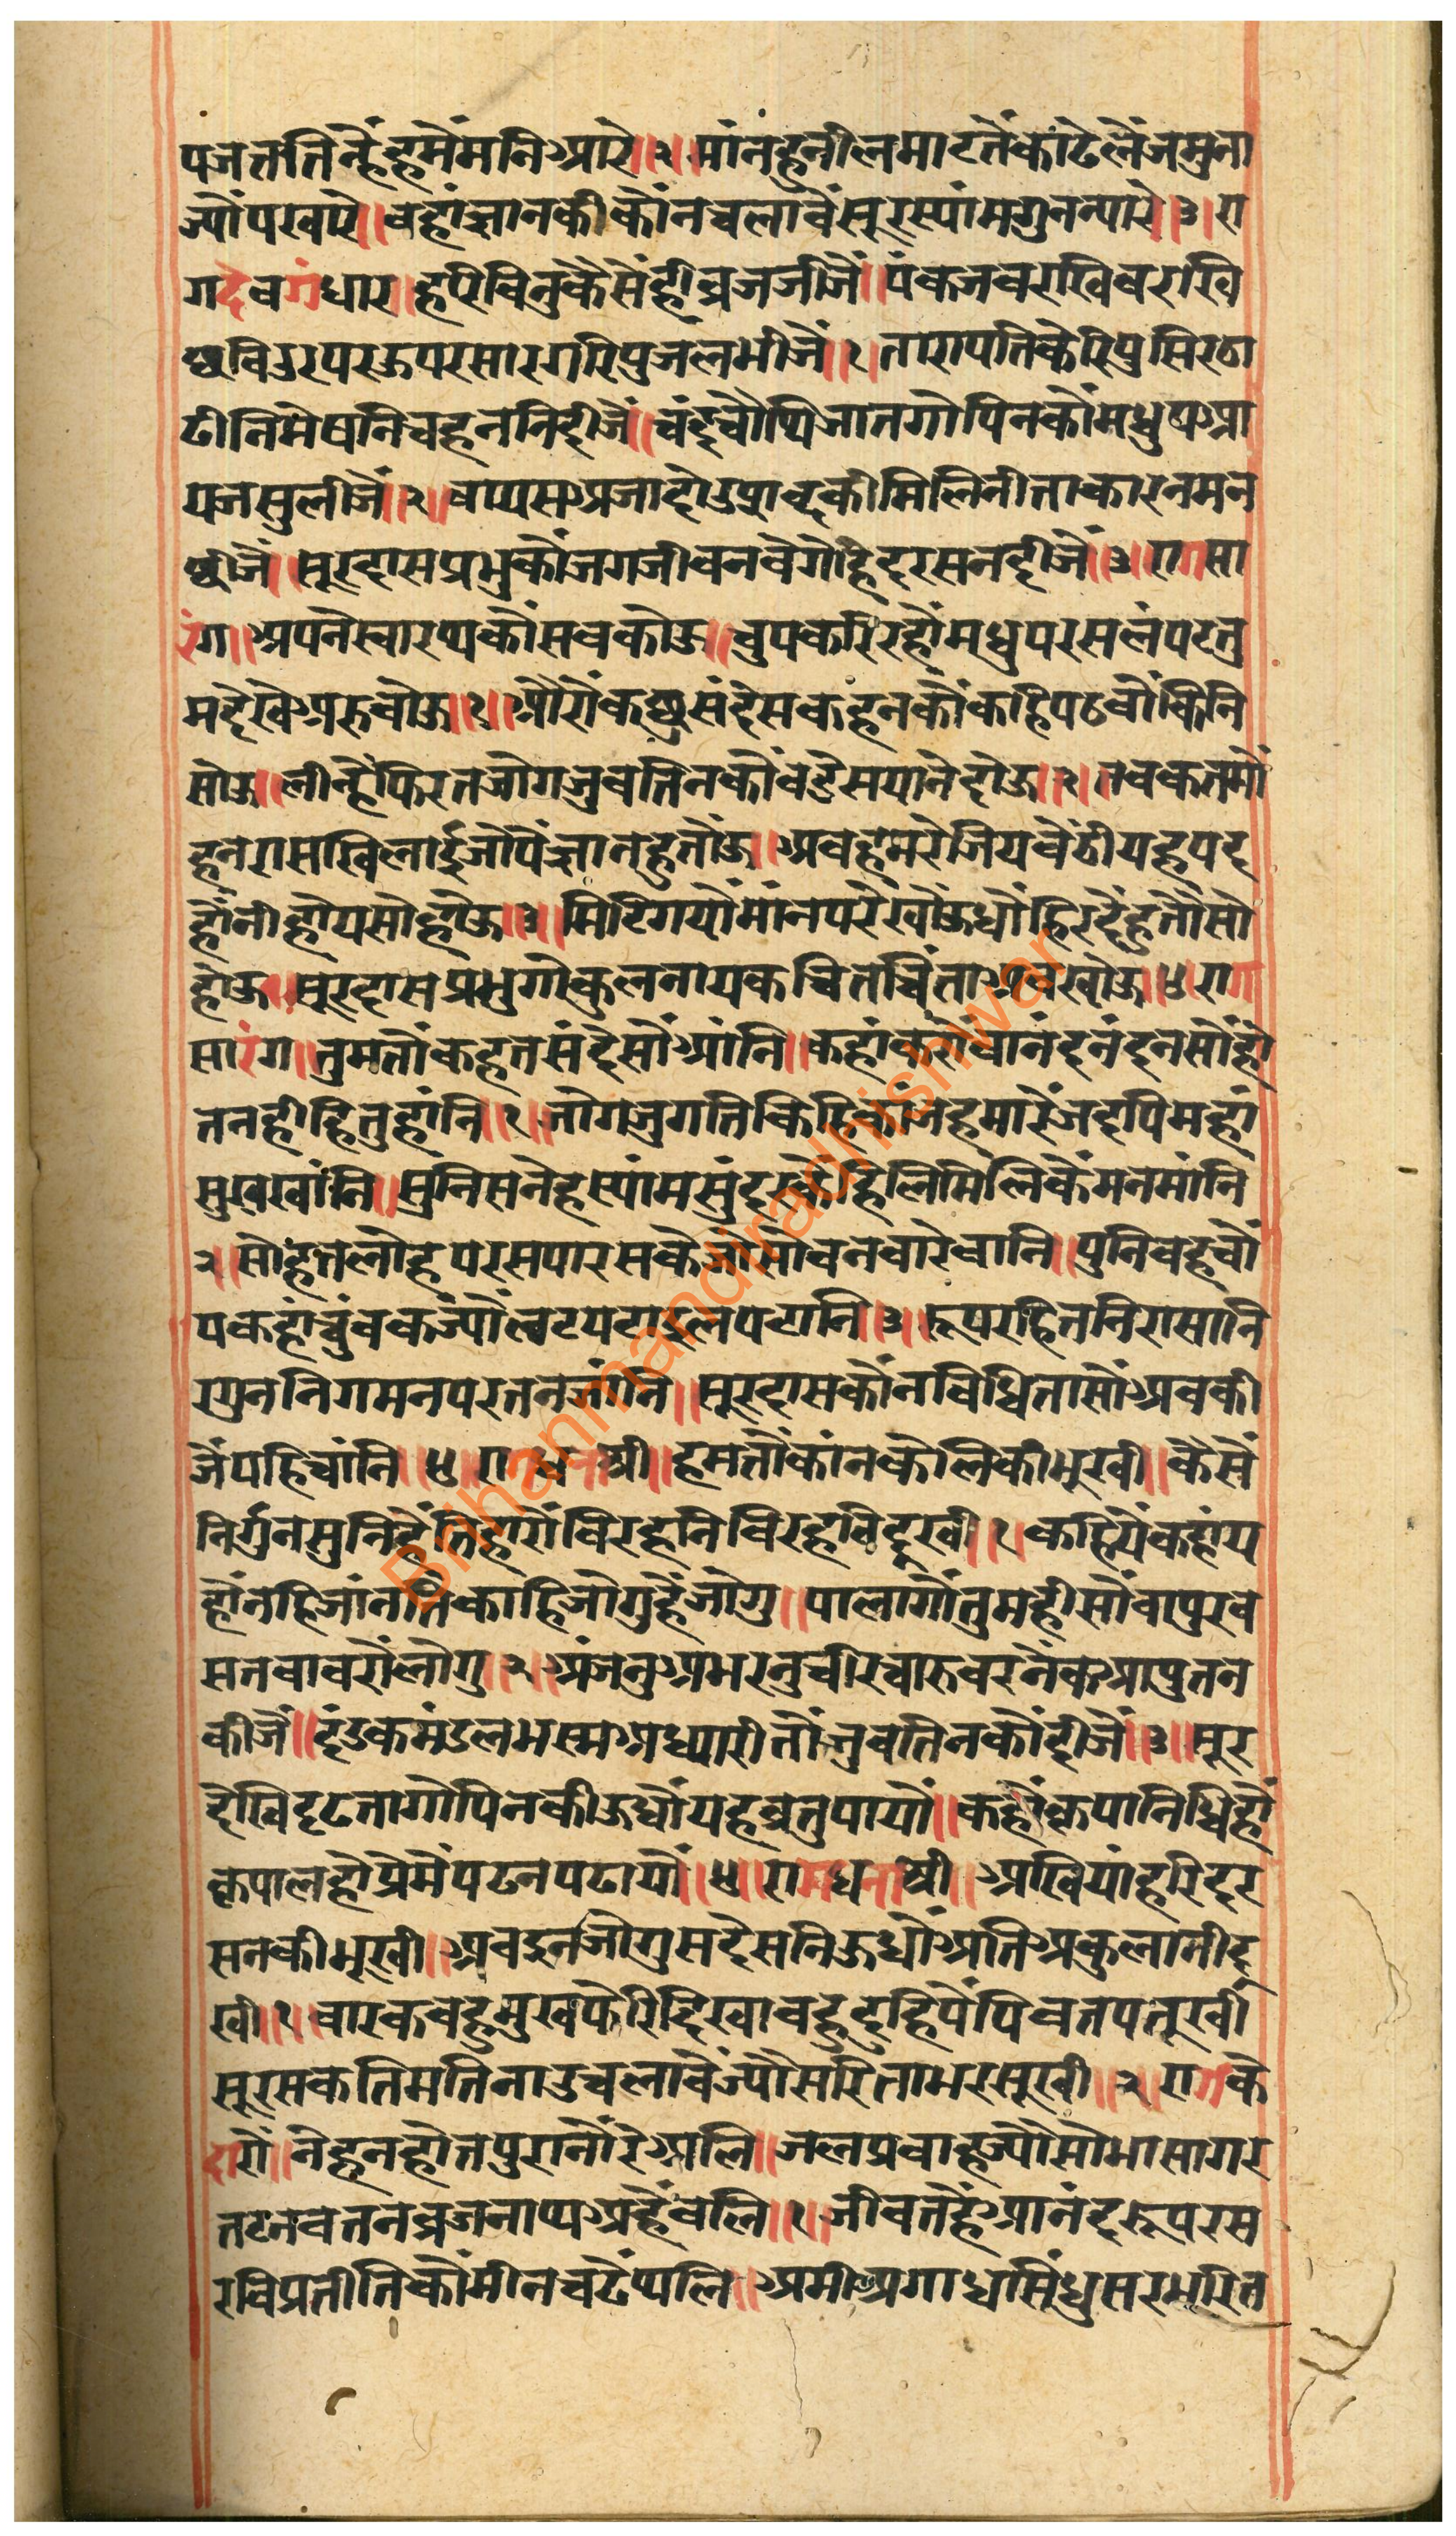 पजततिन्हैंहमैंमनिआरे॥२॥मांनहुनीलमाटतैंकाढेलैंजमुना
ज्यौंपखारे॥वहांज्ञानकीकौंनचलावैंसूरस्यांमगुनन्यारे॥३॥रा
गदेवगंधार॥हरिविनुकैसैंहीव्रजजीजैं॥पंकजवराखिवराखि
छविउरपरऊपरसारंगरिपुजलभीजैं॥१॥तारापतिकेरिपुसिरठा
ढीनिमेषनिचहननिदीजैं॥चंद्रचौथिजातगोपिनकौंमधुपआ
यजसुलीजैं॥२॥
छीजैं॥सूरदासप्रभुकौंजगजीवनवेगोहिदरसनदीजैं॥३॥रागसा
रंग॥अपनेस्वारथकौंसबकोऊ॥चुपकरिरहौंमधुपरसलंपटतु
मदेखेअरुवोऊ॥१॥औरौंकछुसंदेसकहनकौंकहिपठवौंकिनि
सोऊ॥लीन्हैंफिरतजोगजुवतिनकौंबडेसयानेदोऊ॥२॥तवकतमो
हनरासखिलाईजौंपैंज्ञानहुतौंऊ॥अवहमरेजियवैंठीयहपद
होंनीहोयसोहोऊ॥३॥मिटिगयौंमांनपरेखौंऊधौंहिरदैंहुतौंसो
होऊ॥सूरदासप्रभुगोकुलनायकचितचिंताअवखोऊ॥४॥राग
सारंग॥तुमतौंकहतसंदेसौंआंनि॥कहांकरौंवानंदनंदनसौंहो
तनहीहितुहांनि॥१॥जोगजुगतिकिहिकाजहमारेंजदपिमहां
सुखखांनि॥सुनिसनेहस्यांमसुंदरकौंहिलिमिलिकैंमनमांनि
२॥सोहतलोहपरसपारसकेजौंसोवनवारेवानि॥पुनिवहचौं
पकहांचुंवकज्यौंलटपटाइलपटानि॥३॥रूपरहितनिरासानि
रगुननिगमनपरतनजांनि॥सूरदासकौंनविधितासौंअवकी
जैंपहिचांनि॥५॥रागधनाश्री॥हमतौंकांनकेलिकीभुखी॥कैंसें
निर्गुनसुनिहैंतिहारौंविरहनिविरहविदूखी॥१॥कहियैंकहांय
हौंनहिजांनतिकाहिजोगुहैंजोगु॥पालागौंतुमहीसौंवापुरव
सतबावरौंलोगु॥२॥अंजनुअभरनुचीरचारुवरनैंकआपुतन
कीजैं॥दंडकमंडलभस्मअध्यारीतौंजुवतिनकौंदीजैं॥३॥सूर
देखिदृढतागोपिनकीऊधौंयहव्रतुपायौं॥कहौंकृपानिधिहौं
कृपालहोप्रेमैंपढनपढायौं॥५॥रागधनाश्री॥अखियांहरिदर
सनकीभूखी॥अवइनजोगुसंदेसनिऊधौंअतिअकुलानीदू
खी॥१॥वारकवेहुमुखफेरिदिखावहुदुहिपैंपिवतपतूखी
सूरसकतिमतिनाउचलावैंज्यौंसरितामरसूखी॥२॥रागके
दारौं॥नेहनहोतपुरानौंरेआलि॥जलप्रवाहज्यौंसोभासागर
तटनवतनव्रजनाथअहैंवलि॥१॥जीवतहैंआनंदरूपरस
रविप्रतीतिकौंमीनचढैंथलि॥अमीअगाधसिंधुसरभरित
Brihanmandiradhishwar